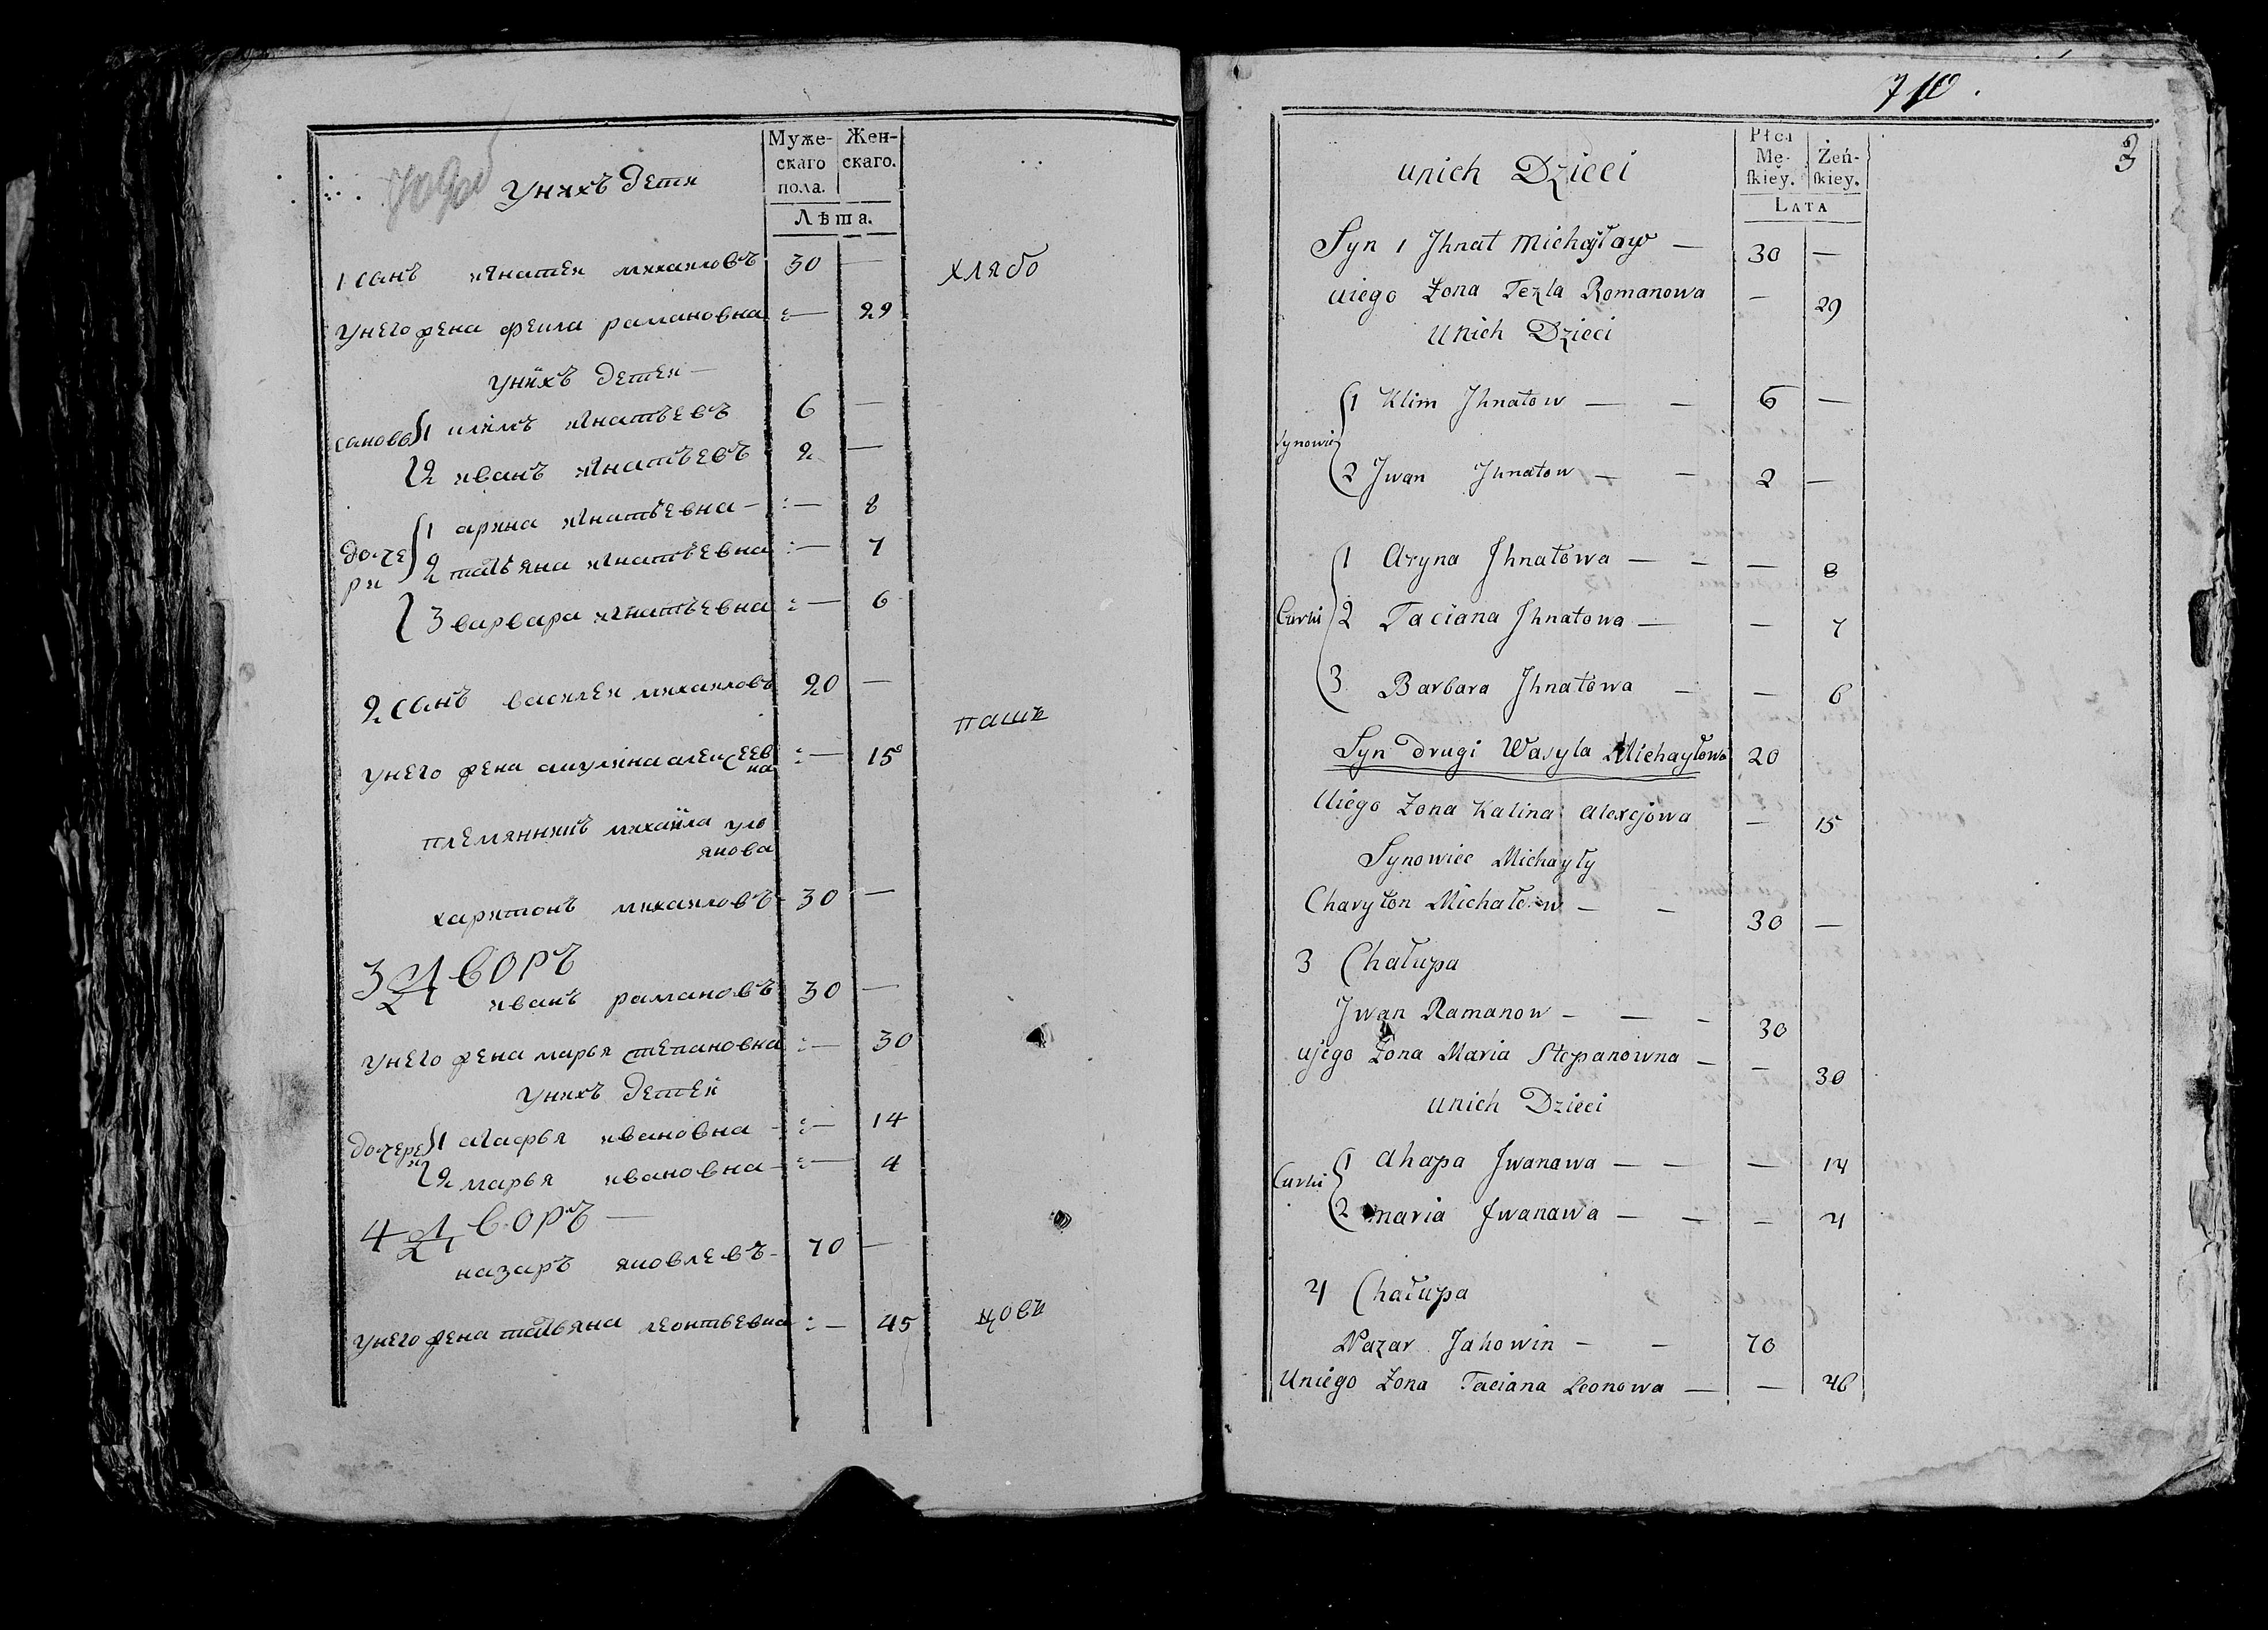 Муже-
скаго
пола.
Жен-
скаго.
Лѣта.
унихъ дети
1 санъ игнатеи михаиловъ 30 —
унего жена фекла рамановна — 29
унихъ детеи —
сановь 1 клiмъ игнатьевъ 6 —
2 иванъ игнатьевъ 2 —
дочери 1 арина игнатьевна — 8
2 татьяна игнатьевна — 7
3 варвара игнатьевна — 6
2 санъ василеи михаиловъ 20 —
унего жена акулiна алексеевна — 15
племянникъ михаила улья
нова
харитонъ михаиловъ 30 —
3 Дворъ
иванъ рамановъ 30 —
унего жена марья степановна — 30
унихъ детей
дочери 1 агафья ивановна — 14
2 марья ивановна — 4
4 Дворъ —
назаръ яковлевъ 70 —
унего жена татьяна леонтьевна — 45
хлябо
паши
цови
710.
3
Płci
Mę-
skiey.
Żeń-
skiey.
LATA
unich Dzieci
Syn 1 Jhnat Michayław — 30 —
uiego Żona Tezla Romanowa — 29
unich Dzieci
Synowie 1 Klim Jhnatow — — 6 —
2 Jwan Jhnatow — — 2 —
1 Aryna Jhnatowa — — — 8
Curki 2 Taciana Jhnatowa — — 7
3 Barbara Jhnatowa — — 6
Syn drugi Wasyla Michayłowa 20
Uiego Żona Kalina Alexejowa — 15
Synowiec Michayły
Charyton Michałow — — 30 —
3 Chałupa
Jwan Ramanow — — — 30
ujego Żona Maria Stepanowna — — 30
unich Dzieci
Curki 1 Ahapa Jwanawa — — — 14
2 maria Jwanawa — — — 4
4 Chałupa
Nazar Jahowin — — 70
Uniego Żona Taciana Leonowa — — 46